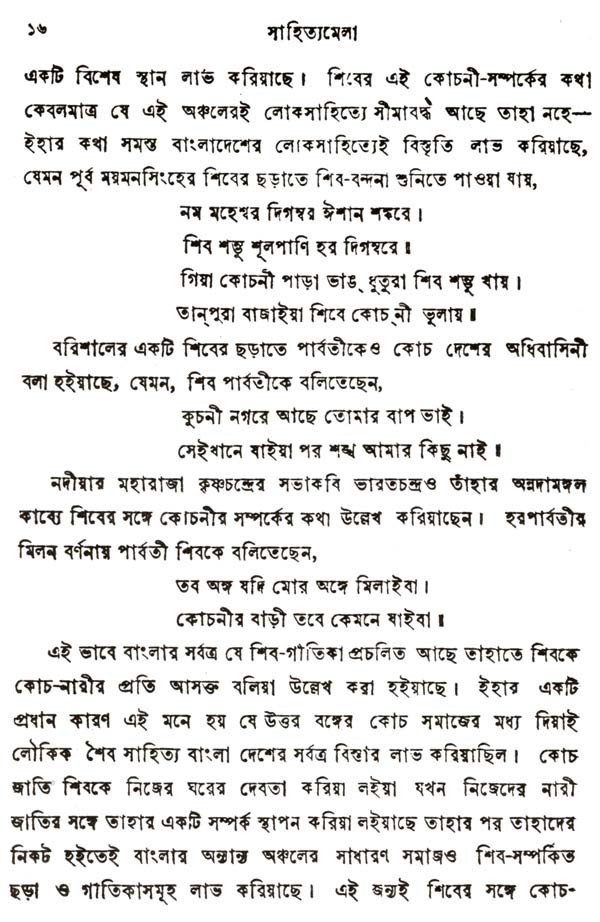 ১৬ সাহিত্যমেলা
একটি বিশেষ স্থান লাভ করিয়াছে। শিবের এই কোচনী-সম্পর্কের কথা
কেবলমাত্র যে এই অঞ্চলেরই লোকসাহিত্যে সীমাবদ্ধ আছে তাহা নহে—
ইহার কথা সমস্ত বাংলাদেশের লোকসাহিত্যেই বিস্তৃতি লাভ করিয়াছে,
যেমন পূর্ব ময়মনসিংহের শিবের ছড়াতে শিব-বন্দনা শুনিতে পাওয়া যায়,
নম মহেশ্বর দিগম্বর ঈশান শঙ্করে।
শিব শম্ভু শূলপাণি হর দিগম্বরে॥
গিয়া কোচনী পাড়া ভাঙ্ ধুতুরা শিব শম্ভু খায়।
তান্‌পুরা বাজাইয়া শিবে কোচ্‌নী ভুলায়॥
বরিশালের একটি শিবের ছড়াতে পার্বতীকেও কোচ দেশের অধিবাসিনী
বলা হইয়াছে, যেমন, শিব পার্বতীকে বলিতেছেন,
কুচনী নগরে আছে তোমার বাপ ভাই।
সেইখানে যাইয়া পর শঙ্খ আমার কিছু নাই॥
নদীয়ার মহারাজা কৃষ্ণচন্দ্রের সভাকবি ভারতচন্দ্রও তাঁহার অন্নদামঙ্গল
কাব্যে শিবের সঙ্গে কোচনীর সম্পর্কের কথা উল্লেখ করিয়াছেন। হরপার্বতীর
মিলন বর্ণনায় পার্বতী শিবকে বলিতেছেন,
তব অঙ্গ যদি মোর অঙ্গে মিলাইবা।
কোচনীর বাড়ী তবে কেমনে যাইবা॥
এই ভাবে বাংলার সর্বত্র যে শিব-গীতিকা প্রচলিত আছে তাহাতে শিবকে
কোচ-নারীর প্রতি আসক্ত বলিয়া উল্লেখ করা হইয়াছে। ইহার একটি
প্রধান কারণ এই মনে হয় যে উত্তর বঙ্গের কোচ সমাজের মধ্য দিয়াই
লৌকিক শৈব সাহিত্য বাংলা দেশের সর্বত্র বিস্তার লাভ করিয়াছিল। কোচ
জাতি শিবকে নিজের ঘরের দেবতা করিয়া লইয়া যখন নিজেদের নারী
জাতির সঙ্গে তাহার একটি সম্পর্ক স্থাপন করিয়া লইয়াছে তাহার পর তাহাদের
নিকট হইতেই বাংলার অন্যান্য অঞ্চলের সাধারণ সমাজও শিব-সম্পর্কিত
ছড়া ও গীতিকাসমূহ লাভ করিয়াছে। এই জন্যই শিবের সঙ্গে কোচ-